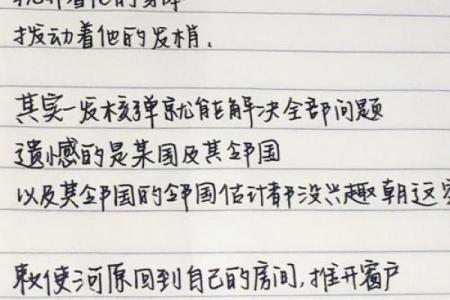 拨动着他的发梢.
其实一发核弹就能解决全部问题
遗憾的是某国及其邻国
以及其邻国的邻国估计都没兴趣朝这
敕使河原回到自己的房间,推开窗户